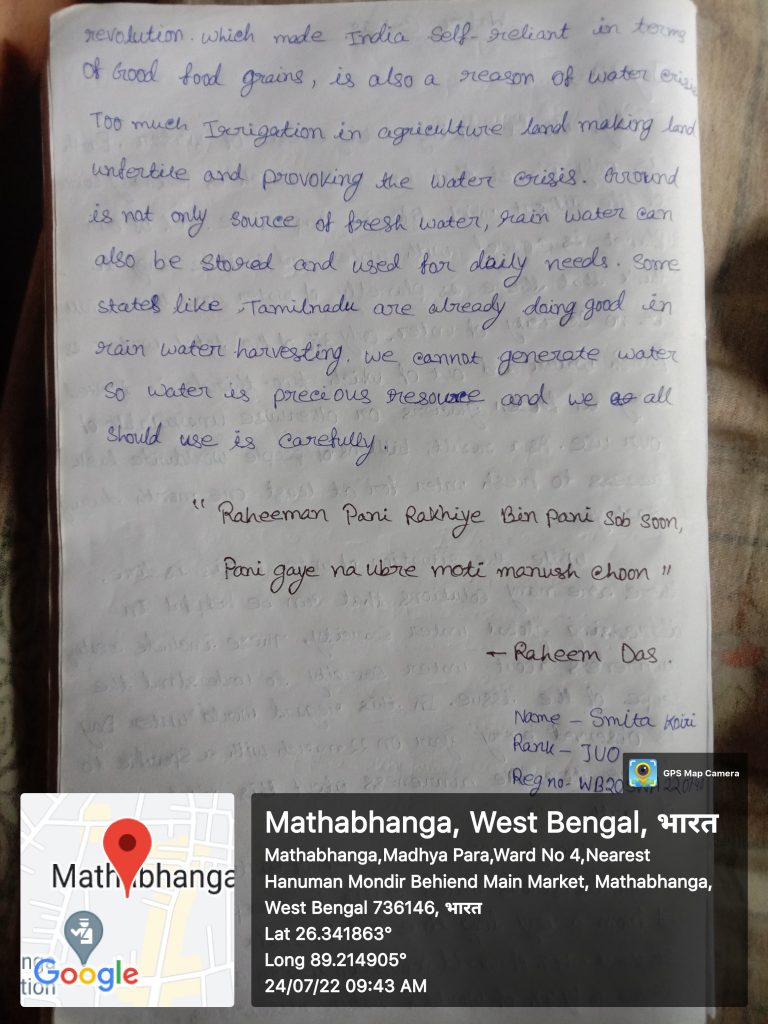 revolution. which made India Self-reliant in terms
Of Good food grains, is also a reason of water crisis
Too much Irrigation in agriculture land making land
unfertile and provoking the water crisis. Ground
is not only source of fresh water, rain water can
also be stored and used for daily needs. Some
states like Tamilnadu are already doing good in
rain water harvesting. we cannot generate water
So water is precious resource and we all
should use is carefully.
"Raheeman Pani Rakhiye Bin Pani Sob Soon,
Pani gaye na ubre moti manush choon"
- Raheem Das.
Name - Smita Koiri
Rank - JUO
Reg no - WB20
GPS Map Camera
Mathabhanga
Google
Mathabhanga, West Bengal, भारत
Mathabhanga,Madhya Para,Ward No 4,Nearest
Hanuman Mondir Behiend Main Market, Mathabhanga,
West Bengal 736146, भारत
Lat 26.341863°
Long 89.214905°
24/07/22 09:43 AM